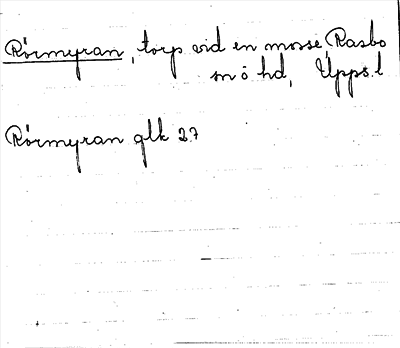 Rörmyran, torp vid en mosse, Rasbo
sn ö hd, Upps. l
Rörmyran glk 27